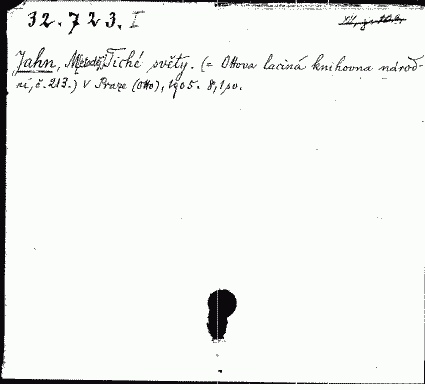 32.723. I
Jahn, Metoděj, Tiché světy. (= Ottova laciná knihovna národ-
ní, č. 213.) V Praze (Otto), 1905. 8, 1 sv.